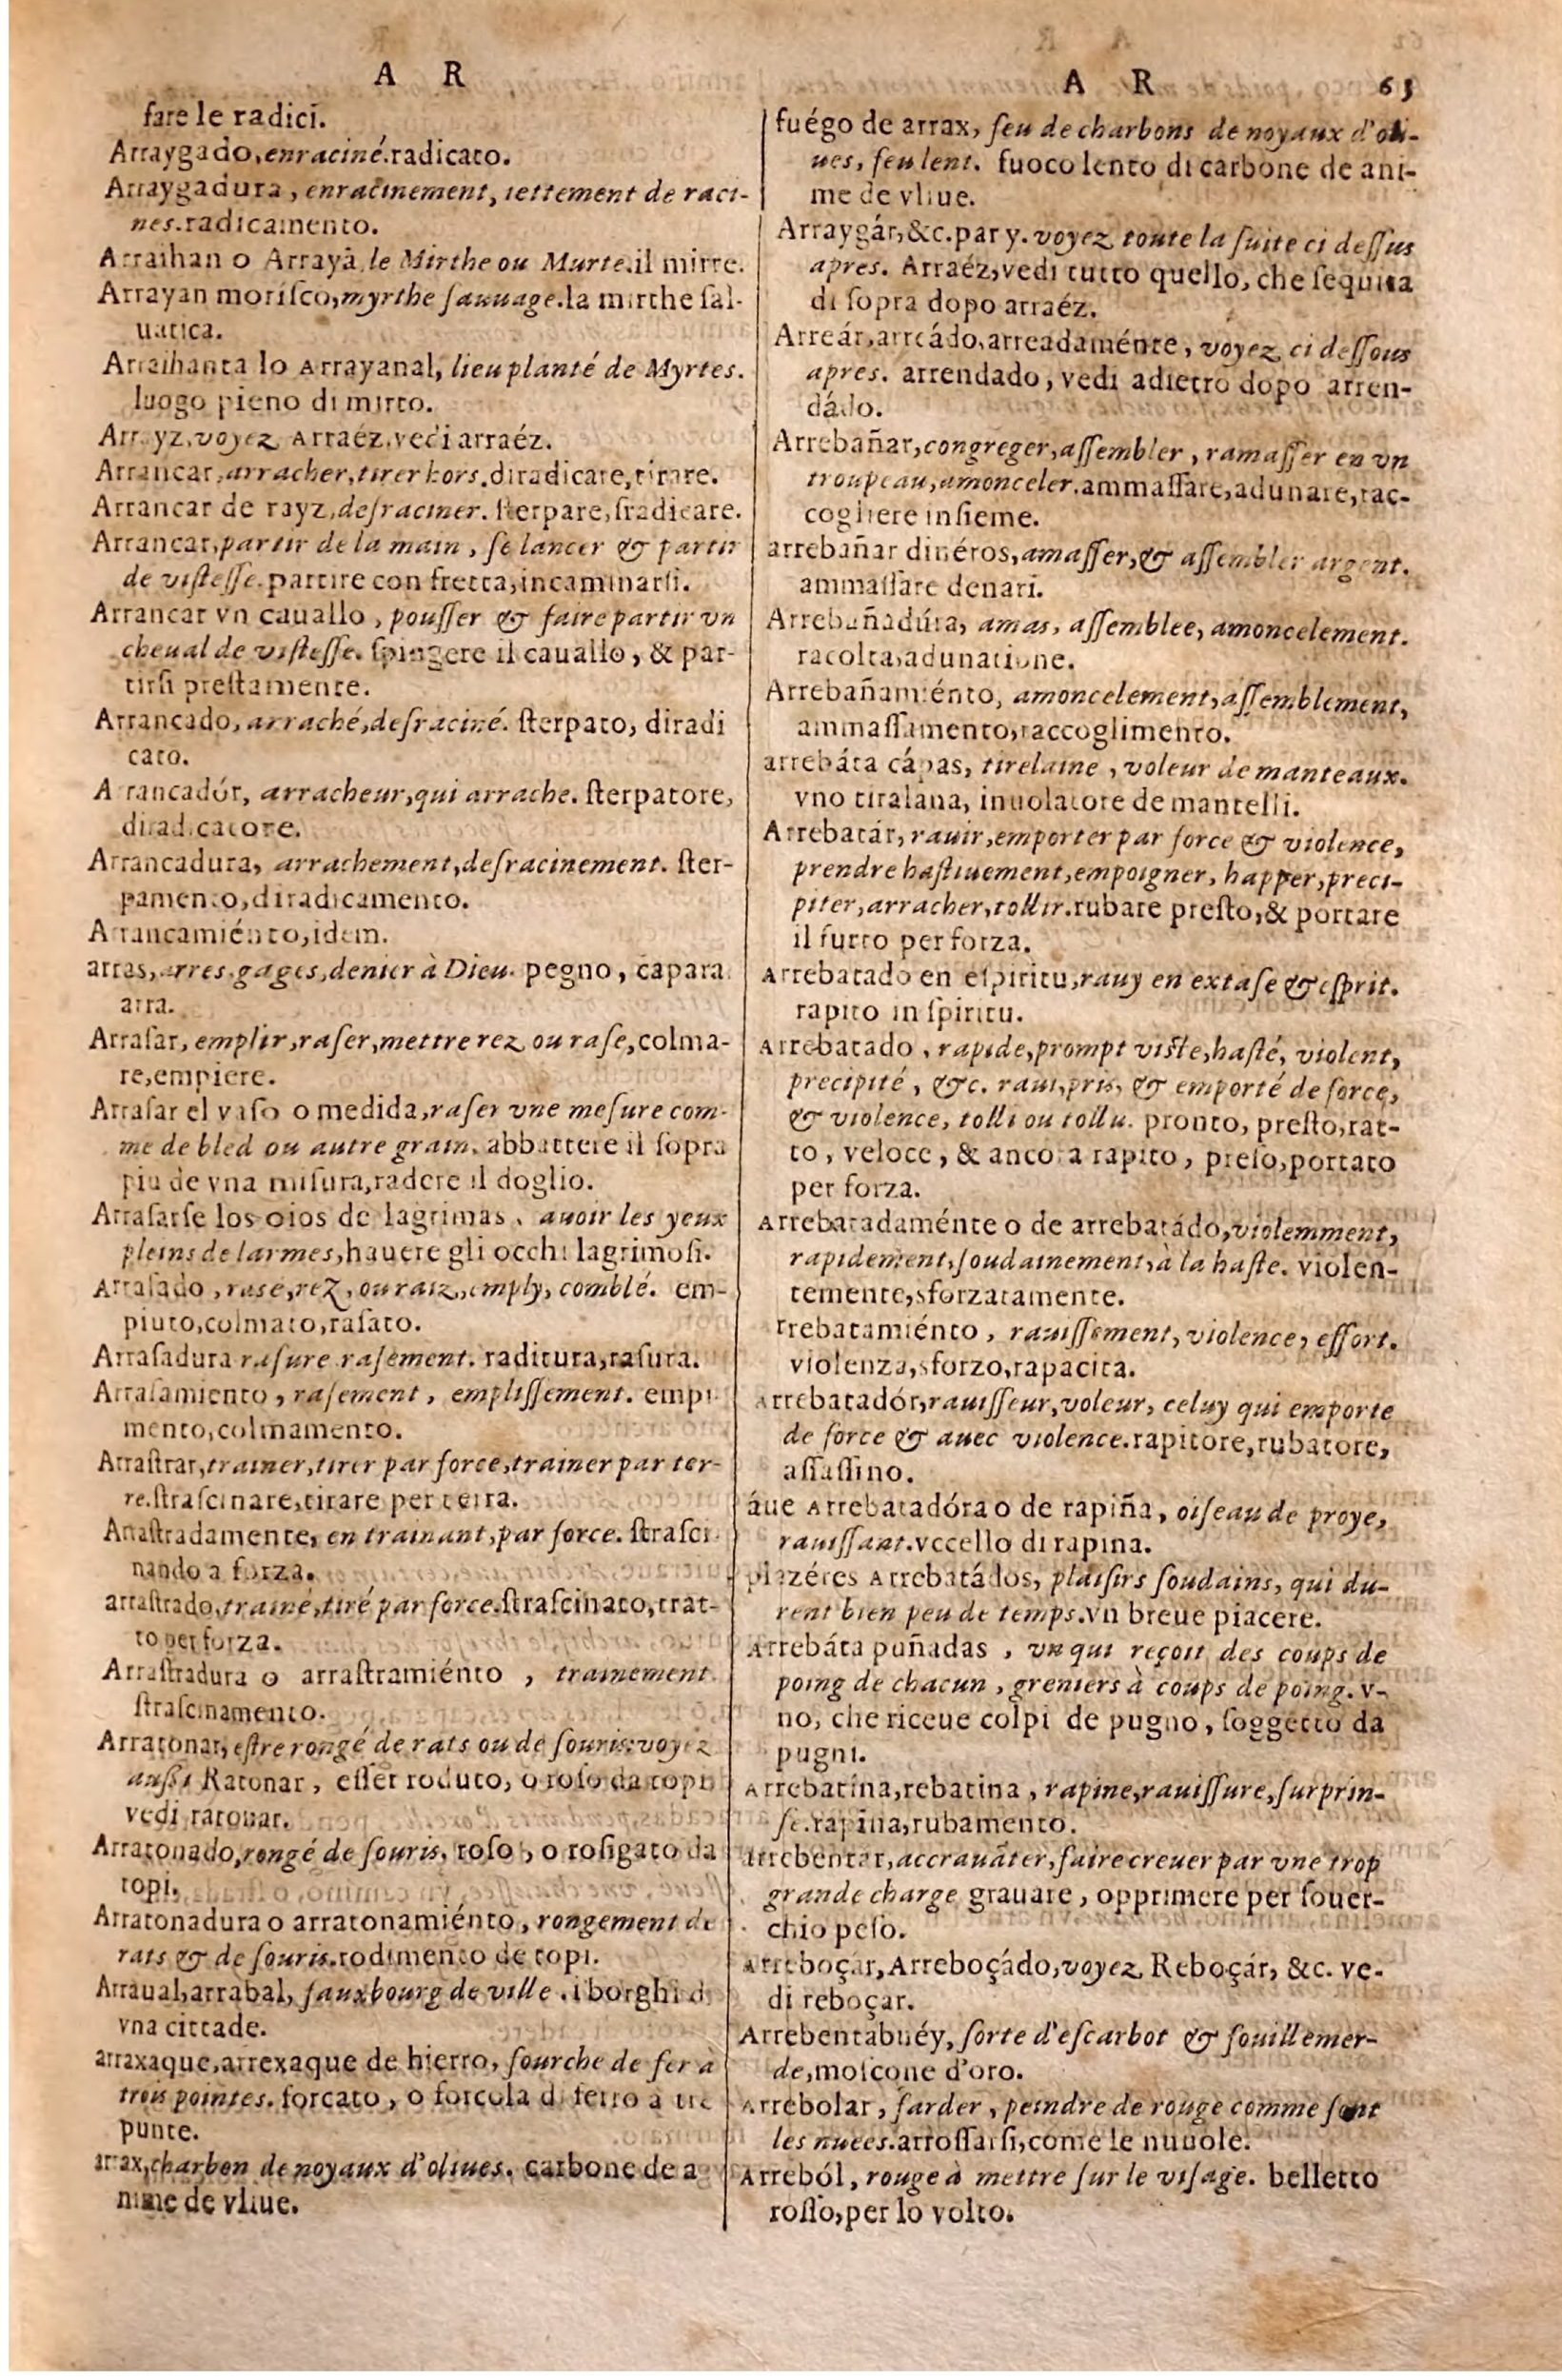 A R
fare le radici.
Arraygado, enraciné. radicato.
Arraygadura, enracinement, iettement de raci-
nes. radicamento.
Arraihan o Arrayā, le Mirthe ou Murte. il mirre.
Arrayan moriſco, myrthe ſauuage. la mirthe ſal-
uatica.
Arraihanta lo Arrayanal, lieu planté de Myrtes.
luogo pieno di mirto.
Arrayz, voyez Arraéz. vedi arraéz.
Arrancar, arracher, tirer hors. diradicare, tirare.
Arrancar de rayz, deſraciner. ſterpare, ſradicare.
Arrancar, partir de la main, ſe lancer & partir
de viſteſſe. partire con fretta, incaminarſi.
Arrancar vn cauallo, pouſſer & faire partir vn
cheual de viſteſſe. ſpingere il cauallo, & par-
tirſi preſtamente.
Arrancado, arraché, deſraciné. ſterpato, diradi
cato.
Arrancadór, arracheur, qui arrache. ſterpatore,
diradicatore.
Arrancadura, arrachement, deſracinement. ſter-
pamento, diradicamento.
Arrancamiénto, idem.
arras, arres, gages, denier à Dieu. pegno, capara
arra.
Arraſar, emplir, raſer, mettre rez ou raſe, colma-
re, empiere.
Arraſar el vaſo o medida, raſer vne meſure com-
me de bled ou autre grain. abbattere il ſopra
piu de vna miſura, radere il doglio.
Arraſarſe los oios de lagrimas, auoir les yeux
pleins de larmes, hauere gli occhi lagrimoſi.
Arraſado, rasé, rez, ou raiz, emply, comblé. em-
piuto, colmato, raſato.
Arraſadura raſure raſement. raditura, raſura.
Arraſamiento, raſement, empliſſement. empi
mento, colmamento.
Arraſtrar, trainer, tirer par force, trainer par ter-
re. ſtraſcinare, tirare per terra.
Arraſtradamente, en trainant, par force. ſtraſci-
nando a forza.
arraſtrado, trainé, tiré par force. ſtraſcinato, trat-
to per forza.
Arraſtradura o arraſtramiénto, trainement.
ſtraſcinamento.
Arratonar, eſtre rongé de rats ou de ſouris: voyez
auſſi Ratonar, eſſer roduto, o roſo da topi
vedi ratonar.
Arratonado, rongé de ſouris. roſo, o roſigato da
topi.
Arratonadura o arratonamiénto, rongement de
rats & de ſouris. rodimento de topi.
Arraual, arrabal, fauxbourg de ville. i borghi di
vna cittade.
arraxaque, arrexaque de hierro, fourche de fer à
trois pointes. forcato, o forcola di ferro a tre
punte.
arrax, charbon de noyaux d'oliues. carbone de a
nime de vliue.
A R 63
fuégo de arrax, feu de charbons de noyaux d'oli-
ues, feu lent. fuoco lento di carbone de ani-
me de vliue.
Arraygár, &c. par y. voyez toute la ſuite ci deſſus
apres. Arraéz, vedi tutto quello, che ſequita
di ſopra dopo arraéz.
Arreár, arreádo, arreadaménte, voyez ci deſſous
apres. arrendado, vedi adietro dopo arren-
dádo.
Arrebañar, congreger, aſſembler, ramaſſer en vn
troupeau, amonceler. ammaſſare, adunare, rac-
cogliere inſieme.
arrebañar dinéros, amaſſer, & aſſembler argent.
ammaſſare denari.
Arrebañadúra, amas, aſſemblee, amoncelement.
racolta, adunatione.
Arrebañamiénto, amoncelement, aſſemblement,
ammaſſamento, raccoglimento.
arrebáta cápas, tirelaine, voleur de manteaux.
vno tiralana, inuolatore de mantelli.
Arrebatár, rauir, emporter par force & violence,
prendre haſtiuement, empoigner, happer, preci-
piter, arracher, tollir. rubare preſto, & portare
il furto per forza.
Arrebatado en eſpiritu, rauy en extaſe & eſprit.
rapito in ſpiritu.
Arrebatado, rapide, prompt viſte, haſté, violent,
precipité, &c. raui, pris, & emporté de force,
& violence, tolli ou tollu. pronto, preſto, rat-
to, veloce, & ancora rapito, preſo, portato
per forza.
Arrebatadaménte o de arrebatádo, violemment,
rapidement, ſoudainement, à la haſte. violen-
temente, sforzatamente.
rrebatamiénto, rauiſſement, violence, effort.
violenza, sforzo, rapacita.
Arrebatadór, rauiſſeur, voleur, celuy qui emporte
de force & auec violence. rapitore, rubatore,
aſſaſſino.
áue Arrebatadóra o de rapiña, oiſeau de proye,
rauiſſant. vccello di rapina.
plazéres Arrebatádos, plaiſirs ſoudains, qui du-
rent bien peu de temps. vn breue piacere.
Arrebáta puñadas, vn qui reçoit des coups de
poing de chacun, greniers à coups de poing. v-
no, che riceue colpi de pugno, ſoggetto da
pugni.
Arrebatína, rebatina, rapine, rauiſſure, ſurprin-
ſe. rapina, rubamento.
arrebentar, accrauāter, faire creuer par vne trop
grande charge grauare, opprimere per ſouer-
chio peſo.
Arreboçár, Arreboçádo, voyez Reboçár, &c. ve-
di reboçar.
Arrebentabuéy, ſorte d'eſcarbot & fouillemer-
de, moſcone d'oro.
Arrebolar, farder, peindre de rouge comme ſont
les nuees. arroſſarſi, come le nuuole.
Arreból, rouge à mettre ſur le viſage. belletto
roſſo, per lo volto.